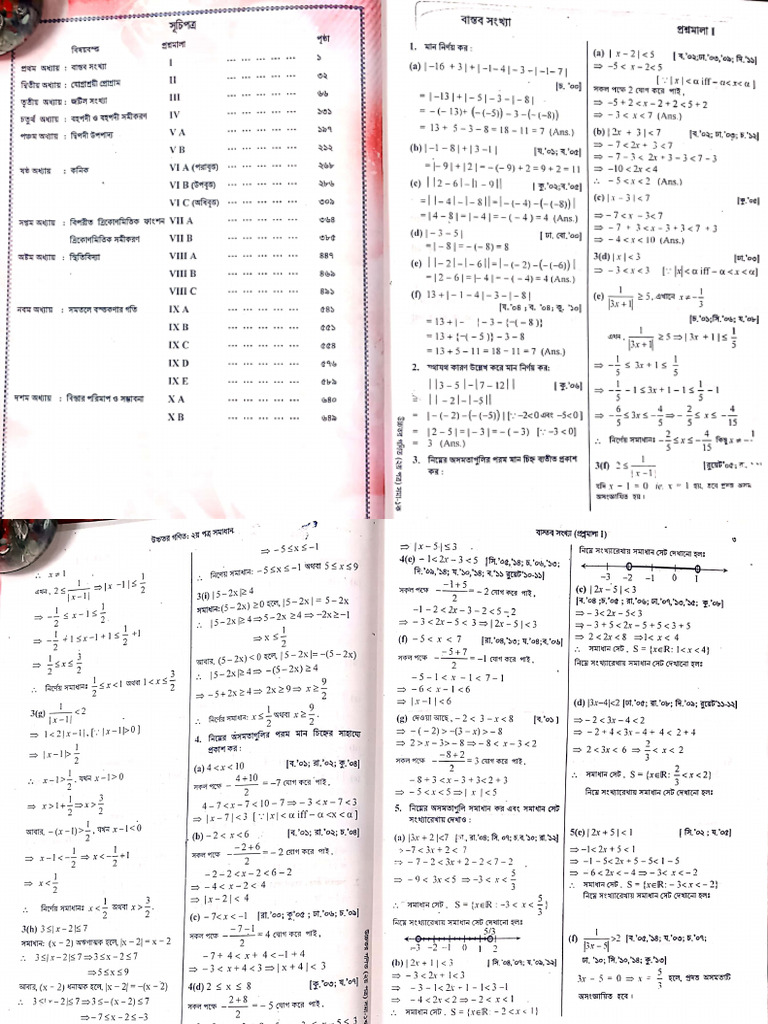 সূচিপত্র
বিষয়বস্তু প্রশ্নমালা পৃষ্ঠা
প্রথম অধ্যায় : বাস্তব সংখ্যা I ... ... ... ... ... ১
দ্বিতীয় অধ্যায় : যোগাশ্রয়ী প্রোগ্রাম II ... ... ... ... ... ৩২
তৃতীয় অধ্যায় : জটিল সংখ্যা III ... ... ... ... ... ৬৬
চতুর্থ অধ্যায় : বহুপদী ও বহুপদী সমীকরণ IV ... ... ... ... ... ১৩১
পঞ্চম অধ্যায় : দ্বিপদী উপপাদ্য V A ... ... ... ... ... ১৯৭
V B ... ... ... ... ... ২১২
ষষ্ঠ অধ্যায় : কনিক VI A (পরাবৃত্ত) ... ... ... ... ২৬৮
VI B (উপবৃত্ত) ... ... ... ... ২৮৬
VI C (অধিবৃত্ত) ... ... ... ... ৩০৯
সপ্তম অধ্যায় : বিপরীত ত্রিকোণমিতিক ফাংশন VII A ... ... ... ... ৩৬৪
ত্রিকোণমিতিক সমীকরণ VII B ... ... ... ... ৩৮৫
অষ্টম অধ্যায় : স্থিতিবিদ্যা VIII A ... ... ... ... ৪৪৭
VIII B ... ... ... ... ৪৬৯
VIII C ... ... ... ... ৪৯১
নবম অধ্যায় : সমতলে বস্তুকণার গতি IX A ... ... ... ... ৫৪১
IX B ... ... ... ... ৫৫১
IX C ... ... ... ... ৫৫৪
IX D ... ... ... ... ৫৭৬
IX E ... ... ... ... ৫৮৯
দশম অধ্যায় : বিস্তার পরিমাপ ও সম্ভাবনা X A ... ... ... ... ৬৪০
X B ... ... ... ... ৬৪৯
বাস্তব সংখ্যা প্রশ্নমালা I
1. মান নির্ণয় কর :
(a) |−16 + 3| + |−1−4| − 3 − |−1−7|
[চ.'০০]
= |−13| + |−5| − 3 − |−8|
= −(−13)+ −(−5)) − 3 −(−8))
= 13 + 5 − 3 − 8 = 18 − 11 = 7 (Ans.)
(b) |−1−8| + |3−1| [য.'০১; ব.'০৫]
= |−9| + |2| = −(−9) + 2 = 9 + 2 = 11
(c) ||2−6|−|1−9|| [কু.'০২;ব.'০৫]
= ||−4|−|−8|| = |−(−4) −(−8))|
= |4−8| = |−4| = −(−4) = 4 (Ans.)
(d) |−3−5| [ঢা.বো.'০০]
= |−8| = −(−8) = 8
(e) ||−2|−|−6|| = |−(−2) −(−6))|
= |2−6| = |−4| = −(−4) = 4 (Ans.)
(f) 13 + |−1−4| − 3 − |−8|
[য.'০৪ ; ব. '০৪; কু. '১০]
= 13 + 5 − 11 = 18 − 11 = 7 (Ans.)
2. কারণ উল্লেখ করে মান নির্ণয় কর:
||3−5|−|7−12|| [কু.'০৬]
= |−(−2) −(−5))| [∵ −2<0 এবং −5<0]
= |2−5| = |−3| = −(−3) [∵ −3<0]
= 3 (Ans.)
3. নিম্নের অসমতাগুলির পরম মান চিহ্ন ব্যতীত প্রকাশ
কর :
(a) |x−2| < 5 [ব.'০২;ঢা.'০৩,'০৯; সি.'১১]
⇒ −5 < x−2 < 5
[∵ |x| < α iff −α < x < α]
সকল পক্ষে 2 যোগ করে পাই,
⇒ −5+2 < x−2+2 < 5+2
⇒ −3 < x < 7 (Ans.)
(b) |2x + 3| < 7 [ব.'০২; ঢা.'০৩; চ.'১২]
⇒ −7 < 2x + 3 < 7
⇒ −7−3 < 2x + 3−3 < 7−3
⇒ −10 < 2x < 4
∴ −5 < x < 2 (Ans.)
(c) |x−3| < 7 [কু.'০৫]
⇒ −7 < x − 3 < 7
⇒ −7 + 3 < x−3+3 < 7+3
⇒ −4 < x < 10 (Ans.)
3(d) |x| < 3 [ঢা.'০৩]
⇒ −3 < x < 3 [∵ |x| < α iff −α < x < α]
(e) 1/|3x+1| ≥ 5, এখানে x ≠ −1/3
[চ.'০১;সি.'০৬; য.'০৮]
এখন, 1/|3x+1| ≥ 5 ⇒ |3x+1| ≤ 1/5
⇒ −1/5 ≤ 3x+1 ≤ 1/5
⇒ −1/5−1 ≤ 3x+1−1 ≤ 1/5−1
⇒ −6/5 ≤ 3x ≤ −4/5 ⇒ −2/5 ≤ x ≤ −4/15
∴ নির্ণেয় সমাধানঃ −2/5 ≤ x ≤ −4/15 কিন্তু x ≠ −
3(f) 2 ≤ 1/|x−1| [বুয়েট'০৫;
যদি x−1 = 0 ie. x = 1 হয়, তবে প্রদত্ত অসম
অসংজ্ঞায়িত হয়।
উচ্চতর গণিত: ২য় পত্র সমাধান
∴ x ≠ 1
এখন, 2 ≤ 1/|x−1| ⇒ |x−1| ≤ 1/2
⇒ −1/2 ≤ x−1 ≤ 1/2
⇒ −1/2+1 ≤ x−1+1 ≤ 1/2+1
⇒ 1/2 ≤ x ≤ 3/2
∴ নির্ণেয় সমাধানঃ 1/2 ≤ x < 1 অথবা 1 < x ≤ 3/2
3(g) 1/|x−1| < 2
⇒ 1 < 2|x−1|, [∵ |x−1| > 0]
⇒ |x−1| > 1/2
∴ x−1 > 1/2, যখন x−1 > 0
⇒ x > 1+1/2 ⇒ x > 3/2
আবার, −(x−1) > 1/2, যখন x−1 < 0
⇒ x−1 < −1/2 ⇒ x < −1/2+1
⇒ x < 1/2
∴ নির্ণেয় সমাধানঃ x < 1/2 অথবা x > 3/2.
3(h) 3 ≤ |x−2| ≤ 7
সমাধান: (x−2) অঋণাত্মক হলে, |x−2| = x−2
∴ 3 ≤ |x−2| ≤ 7 ⇒ 3 ≤ x−2 ≤ 7
⇒ 5 ≤ x ≤ 9
আবার, (x−2) ধনাত্মক হলে, |x−2| = −(x−2)
∴ 3 ≤ |x−2| ≤ 7 ⇒ 3 ≤ −(x−2) ≤ 7
⇒ −7 ≤ x−2 ≤ −3
⇒ −5 ≤ x ≤ −1
∴ নির্ণেয় সমাধান: −5 ≤ x ≤ −1 অথবা 5 ≤ x ≤ 9
3(i) |5−2x| ≥ 4
সমাধান:(5−2x) ≥ 0 হলে, |5−2x| = 5−2x
∴ |5−2x| ≥ 4 ⇒ 5−2x ≥ 4 ⇒ −2x ≥ −1
⇒ x ≤ 1/2
আবার, (5−2x) < 0 হলে, |5−2x| = −(5−2x)
∴ |5−2x| ≥ 4 ⇒ −(5−2x) ≥ 4
⇒ −5+2x ≥ 4 ⇒ 2x ≥ 9 ⇒ x ≥ 9/2
∴ নির্ণেয় সমাধান: x ≤ 1/2 অথবা x ≥ 9/2.
4. নিম্নের অসমতাগুলির পরম মান চিহ্নের সাহায্যে
প্রকাশ কর :
(a) 4 < x < 10 [ব.'০১; রা.'০২; কু.'০৪]
সকল পক্ষে −(4+10)/2 = −7 যোগ করে পাই,
4−7 < x−7 < 10−7 ⇒ −3 < x−7 < 3
⇒ |x−7| < 3 [∵ |x| < α iff −α < x < α]
(b) −2 < x < 6 [ব.'০১; রা.'০২; চ.'০৪]
সকল পক্ষে −(−2+6)/2 = −2 যোগ করে পাই,
−2−2 < x−2 < 6−2
⇒ −4 < x−2 < 4
⇒ |x−2| < 4
(c) −7 < x < −1 [রা.'০০; কু'০৫; ঢা.'০৬; চ.'০৯]
সকল পক্ষে −(−7−1)/2 = 4 যোগ করে পাই,
−7+4 < x+4 < −1+4
⇒ −3 < x+4 < 3 ⇒ |x+4| < 3
4(d) 2 ≤ x ≤ 8 [কু.'০৩; য.'০৭]
সকল পক্ষে −(2+8)/2 = −5 যোগ করে পাই,
বাস্তব সংখ্যা (প্রশ্নমালা I) ৩
⇒ |x−5| ≤ 3
4(e) −1 < 2x−3 < 5 [সি.'০৫,'১৪; চ.'০৬,'১৩;
দি.'০৯,'১৪; য.'১০,'১৪; ব.'১১ বুয়েট'১০-১১]
সকল পক্ষে −(−1+5)/2 = −2 যোগ করে পাই,
−1−2 < 2x−3−2 < 5−2
⇒ −3 < 2x−5 < 3 ⇒ |2x−5| < 3
(f) −5 < x < 7 [রা.'০৪,'১৩; য.'০৪;ব.'০৬]
সকল পক্ষে −(−5+7)/2 = −1 যোগ করে পাই,
−5−1 < x−1 < 7−1
⇒ −6 < x−1 < 6
⇒ |x−1| < 6
(g) দেওয়া আছে, −2 < 3−x < 8 [ব.'০১]
⇒ −(−2) > −(3−x) > −8
⇒ 2 > x−3 > −8 ⇒ −8 < x−3 < 2
সকল পক্ষে −(−8+2)/2 = 3 যোগ করে পাই,
−8+3 < x−3+3 < 2+3
⇒ −5 < x < 5 ⇒ |x| < 5
5. নিম্নের অসমতাগুলি সমাধান কর এবং সমাধান সেট
সংখ্যারেখায় দেখাও :
(a) |3x+2| < 7 রা.'০৪; সি. '০৭; চ.ব.'১০; রা.'১২]
⇒ −7 < 3x+2 < 7
⇒ −7−2 < 3x+2−2 < 7−2
⇒ −9 < 3x < 5 ⇒ −3 < x < 5/3
∴ সমাধান সেট, S = {x∈ℝ : −3 < x < 5/3}
নিম্নে সংখ্যারেখায় সমাধান সেট দেখানো হলঃ
5/3
−3 −2 −1 0 1 2
(b) |2x+1| < 3 [সি.'০৪,'০৭; য.'০৯,'১২]
⇒ −3 < 2x+1 < 3
⇒ −3−1 < 2x+1−1 < 3−1
⇒ −4 < 2x < 2 ⇒ −2 < x < 1
∴ সমাধান সেট, S = {x∈ℝ : −2 < x < 1}
নিম্নে সংখ্যারেখায় সমাধান সেট দেখানো হলঃ
−3 −2 −1 0 1
(c) |2x−5| < 3
[ব.'০৪;চ.'০৫ ; রা.'০৬; ঢা.'০৭,'১৩,'১৫; কু.'০৮]
⇒ −3 < 2x−5 < 3
⇒ −3+5 < 2x−5+5 < 3+5
⇒ 2 < 2x < 8 ⇒ 1 < x < 4
∴ সমাধান সেট, S = {x∈ℝ: 1 < x < 4}
নিম্নে সংখ্যারেখায় সমাধান সেট দেখানো হলঃ
(d) |3x−4| < 2 [ঢা.'০৫; রা.'০৮; দি.'০৯; বুয়েট'১১-১২]
⇒ −2 < 3x−4 < 2
⇒ −2+4 < 3x−4+4 < 2+4
⇒ 2 < 3x < 6 ⇒ 2/3 < x < 2
∴ সমাধান সেট, S = {x∈ℝ: 2/3 < x < 2}
নিম্নে সংখ্যারেখায় সমাধান সেট দেখানো হলঃ
5(e) |2x+5| < 1 [সি.'০২ ; য.'০৫]
⇒ −1 < 2x+5 < 1
⇒ −1−5 < 2x+5−5 < 1−5
⇒ −6 < 2x < −4 ⇒ −3 < x < −2
∴ সমাধান সেট, S = {x∈ℝ: −3 < x < −2}
নিম্নে সংখ্যারেখায় সমাধান সেট দেখানো হলঃ
(f) 1/|3x−5| > 2 [ব.'০৫,'১৪; য.'০৩; চ.'০৭;
ঢা.'১০; সি.'১০,'১৪; কু.'১৩]
3x−5 = 0 ⇒ x = 5/3 হলে, প্রদত্ত অসমতাটি
অসংজ্ঞায়িত হবে।